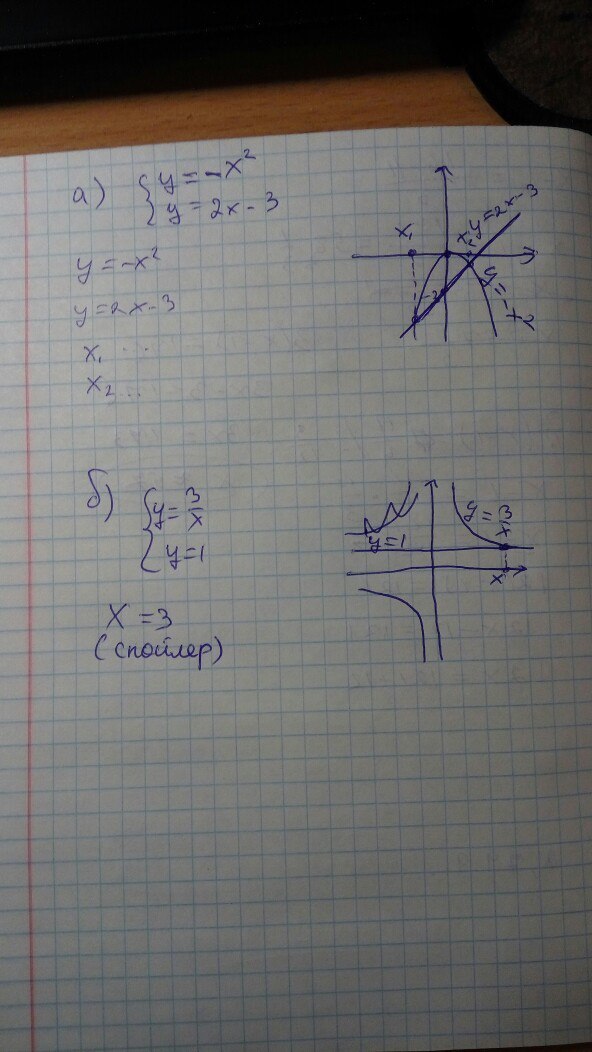 а) { y = -x²
y = 2x - 3
y = -x²
y = 2x - 3
x₁ ...
x₂ ...
x₁
x₂
y = 2x - 3
-3
y = -x²
б) { y = 3/x
y = 1
X = 3
(спойлер)
y = 1
y = 3/x
x₁